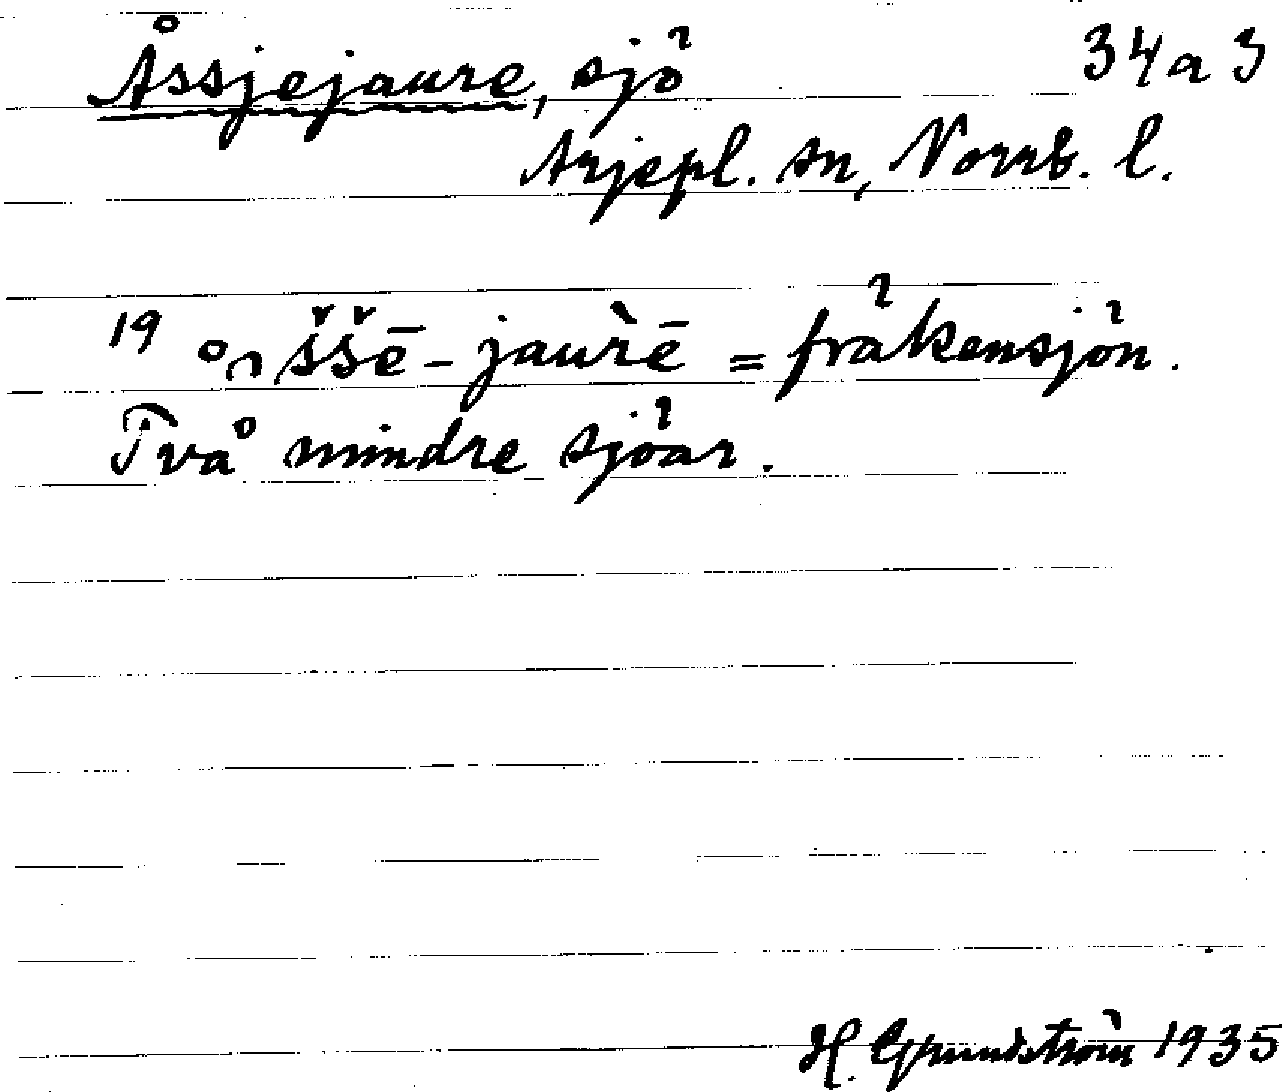 Åssjejaure, sjö 34a3
Arjepl. sn, Norrb. l.
19 oₙššē-jaùrē = fräkensjön.
Två mindre sjöar.
H. Grundström 1935